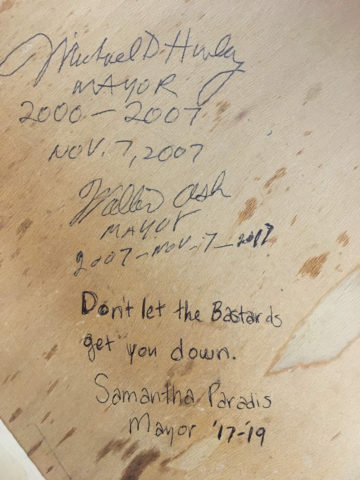 Michael D. Hurley
MAYOR
2000-2007
NOV. 7, 2007
Walter Ash
MAYOR
2007-NOV. 7-2017
Don't let the Bastards
get you down.
Samantha Paradis
Mayor '17-'19